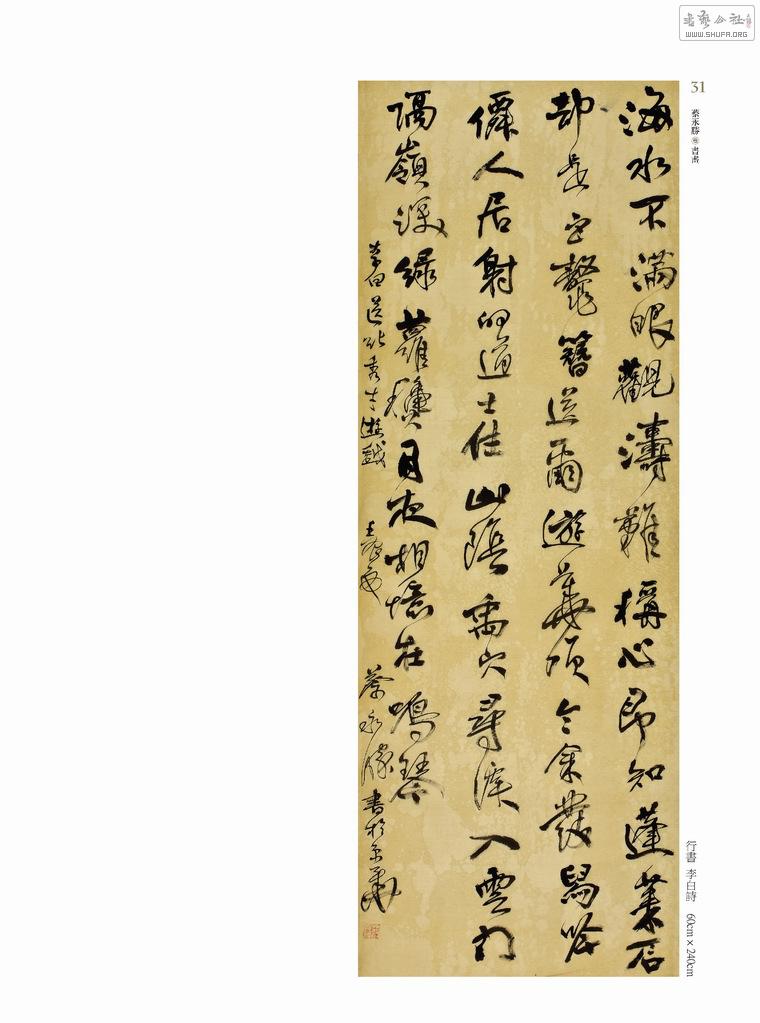 書藝公社
WWW.SHUFA.ORG
31
蔡永勝 書畫
海水不滿眼觀濤難稱心即知蓬萊石
却是巨鼇簪送爾遊華頂令余發舄吟
僊人居射的道士住山陰禹穴尋溪入雲門
隔嶺深綠蘿穐月夜相憶在鳴琴
李白送紀秀才遊越 蔡永勝書於京華
行書 李白詩 60cm×240cm